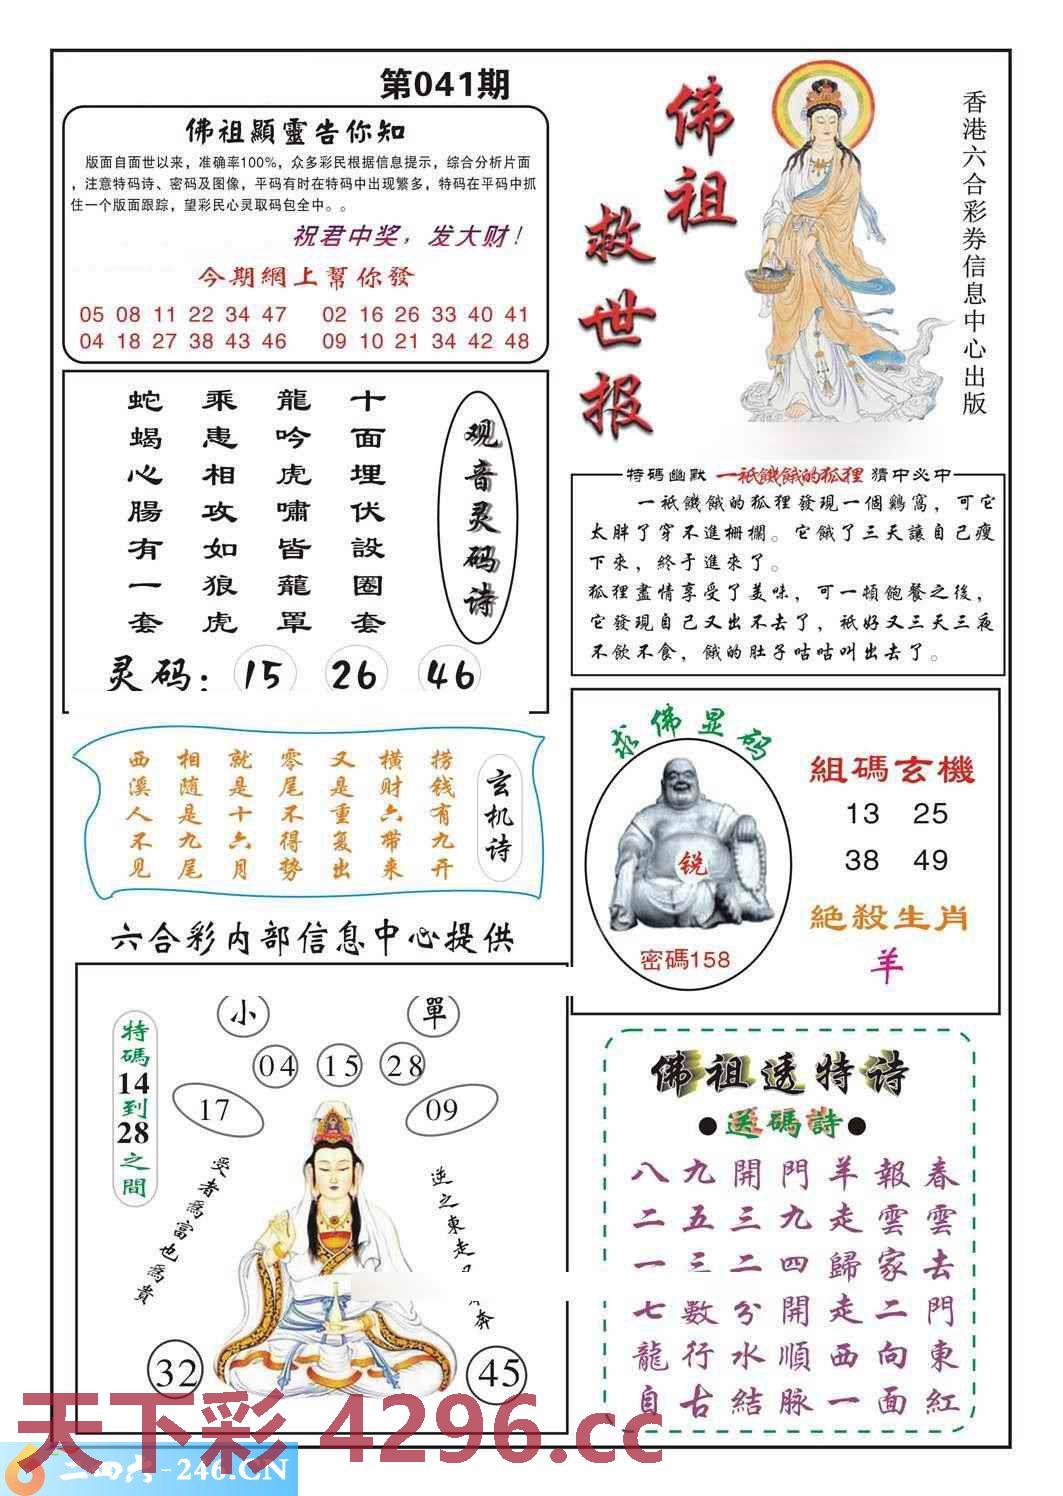 第041期
佛祖顯靈告你知
版面自面世以来，准确率100%，众多彩民根据信息提示，综合分析片面
，注意特码诗、密码及图像，平码有时在特码中出现繁多，特码在平码中抓
住一个版面跟踪，望彩民心灵取码包全中。。
祝君中奖，发大财！
今期網上幫你發
05 08 11 22 34 47 02 16 26 33 40 41
04 18 27 38 43 46 09 10 21 34 42 48
佛祖
救世报
香港六合彩券信息中心出版
观音灵码诗
十面埋伏設圈套
龍吟虎嘯皆龍罩
乘患相攻如狼虎
蛇蝎心腸有一套
灵码：15 26 46
特碼幽默 一衹餓餓的狐狸 猜中必中
一衹饑餓的狐狸發現一個鷄窩，可它
太胖了穿不進栅欄。它餓了三天讓自己瘦
下來，終于進來了。
狐狸盡情享受了美味，可一頓飽餐之後，
它發現自己又出不去了，衹好又三天三夜
不飲不食，餓的肚子咕咕叫出去了。
玄机诗
捞钱有九开
横财六带来
又是重复出
零尾不得势
就是十六月
相随是九尾
西溪人不见
求佛显码
锐
密碼158
組碼玄機
13 25
38 49
絕殺生肖
羊
六合彩内部信息中心提供
特碼14到28之間
小 單
04 15 28
17 09
受者爲富也爲貴
逆之東走
奔
32 45
佛祖透特诗
●送碼詩●
八九開門羊報春
二五三九走雲雲
一三二四歸家去
七數分開走二門
龍行水順西向東
自古結脉一面紅
天下彩 4296.cc
二四六-246.CN